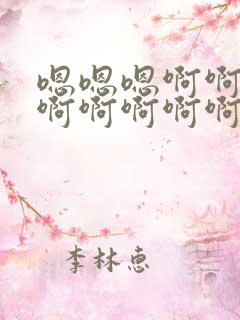 嗯嗯嗯啊啊
啊啊啊啊啊
李林惠